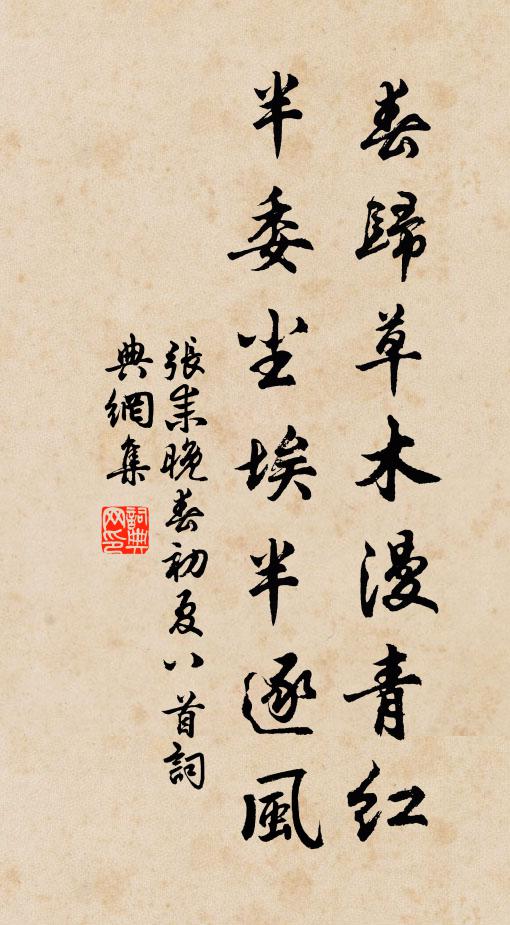 春歸草木漫青红
半委尘埃半逐風
張耒晚春初夏八首詞
典網集
詞典网印